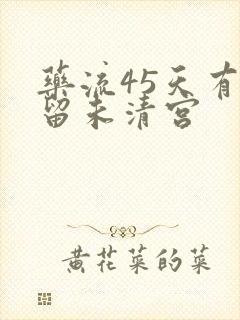 药流45天有
留未清宫
黄花菜的菜